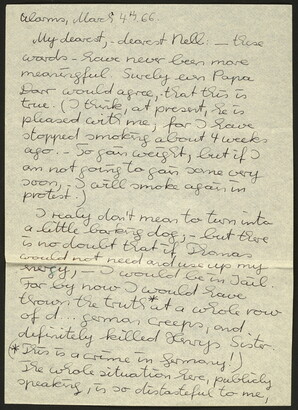 Worms, March 4th, 66.
My dearest, - dearest Nell: — these
words - have never been more
meaningful. Surely even Papa
Darr would agree, that this is
true. (I think, at present, he is
pleased with me, for I have
stopped smoking about 4 weeks
ago. - To gain weight, but if I
am not going to gain some very
soon, - I will smoke again in
protest.)
I realy don't mean to turn into
a little barking dog, - but there
is no doubt that if, Thomas
would not need and use up my
energy, - I would be in Jail.
For by now I would have
thrown the truth* at a whole row
of d... german creeps, and
definitely killed Henrys Sister.
(* This is a crime in Germany!)
The whole situation here, publicly
speaking, is so distasteful to me,